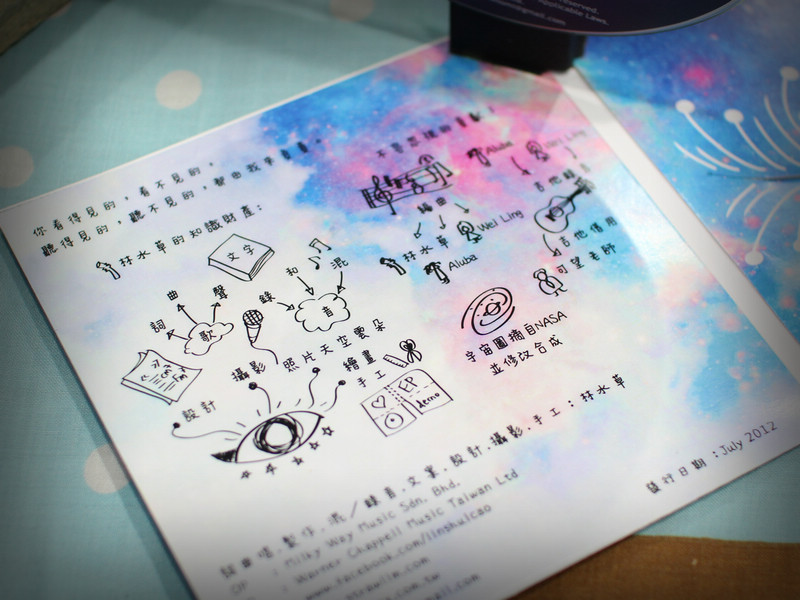 reserved.
Applicable Laws.
@gmail.com
你看得見的，看不見的，
聽得見的，聽不見的，
不可思議的
林水草的知識財產:
文字
曲
聲
詞
歌
錄
和
混
音
編曲
林水草
Wei Ling
Aluba
Aluba
Wei Ling
吉他
吉他借用
可望老師
攝影
照片天空雲朵
繪畫
手工
設計
EP
Demo
宇宙圖摘自NASA
並修改合成
詞曲唱.製作.混／錄音.文案.設計.攝影.手工：林水草
OP : Milky Way Music Sdn. Bhd.
: Warner Chappell Music Taiwan Ltd
www.facebook.com/linshuicao
發行日期：July 2012